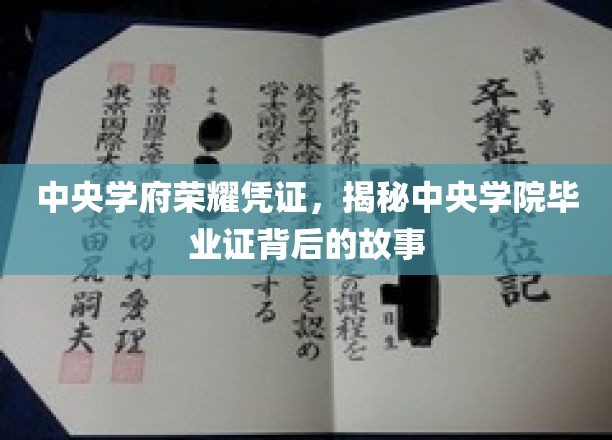 中央学府荣耀凭证，揭秘中央学院毕
业证背后的故事
第 号
卒業証 学位記
本学商学部 定の課程を
修めて本学 ことを認め
学士(商学)の学 する
平成
東京国際大学 田村愛理
東京国際大 長田尻嗣夫